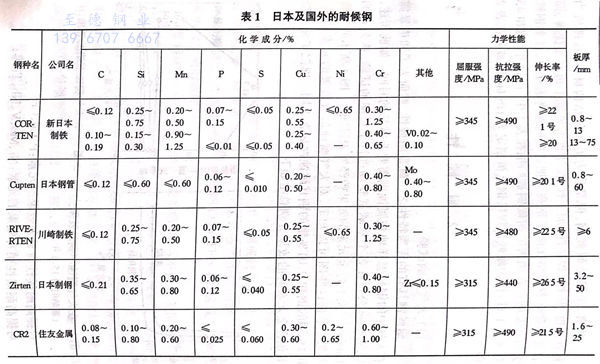 至德钢业
139 6707 6667
表1 日本及国外的耐候钢
钢种名 公司名 化学成分/% 力学性能 板厚/mm
C Si Mn P S Cu Ni Cr 其他 屈服强度/MPa 抗拉强度/MPa 伸长率/%
COR-TEN 新日本制铁 ≤0.12 0.25~0.75 0.20~0.50 0.07~0.15 ≤0.05 0.25~0.55 ≤0.65 0.30~1.25 ≥345 ≥490 ≥22 1号 0.8~13
0.10~0.19 0.15~0.30 0.90~1.25 ≤0.01 ≤0.05 0.25~0.40 — 0.40~0.65 V0.02~0.10 ≥20 13~75
Cupten 日本钢管 ≤0.12 ≤0.60 ≤0.60 0.06~0.12 ≤0.010 0.20~0.50 — 0.40~0.80 Mo 0.40~0.80 ≥345 ≥490 ≥20 1号 0.8~60
RIVE-RTEN 川崎制铁 ≤0.12 0.25~0.75 0.20~0.50 0.07~0.15 ≤0.05 0.25~0.55 ≤0.65 0.30~1.25 — ≥345 ≥480 ≥22 5号 ≥6
Zirten 日本制钢 ≤0.21 0.35~0.65 0.30~0.80 0.06~0.12 ≤0.040 0.25~0.55 — 0.40~0.80 Zr≤0.15 ≥315 ≥440 ≥26 5号 3.2~50
CR2 住友金属 0.08~0.15 0.10~0.80 0.20~0.60 ≤0.025 ≤0.060 0.30~0.60 0.2~0.65 0.60~1.00 — ≥315 ≥490 ≥21 5号 1.6~25